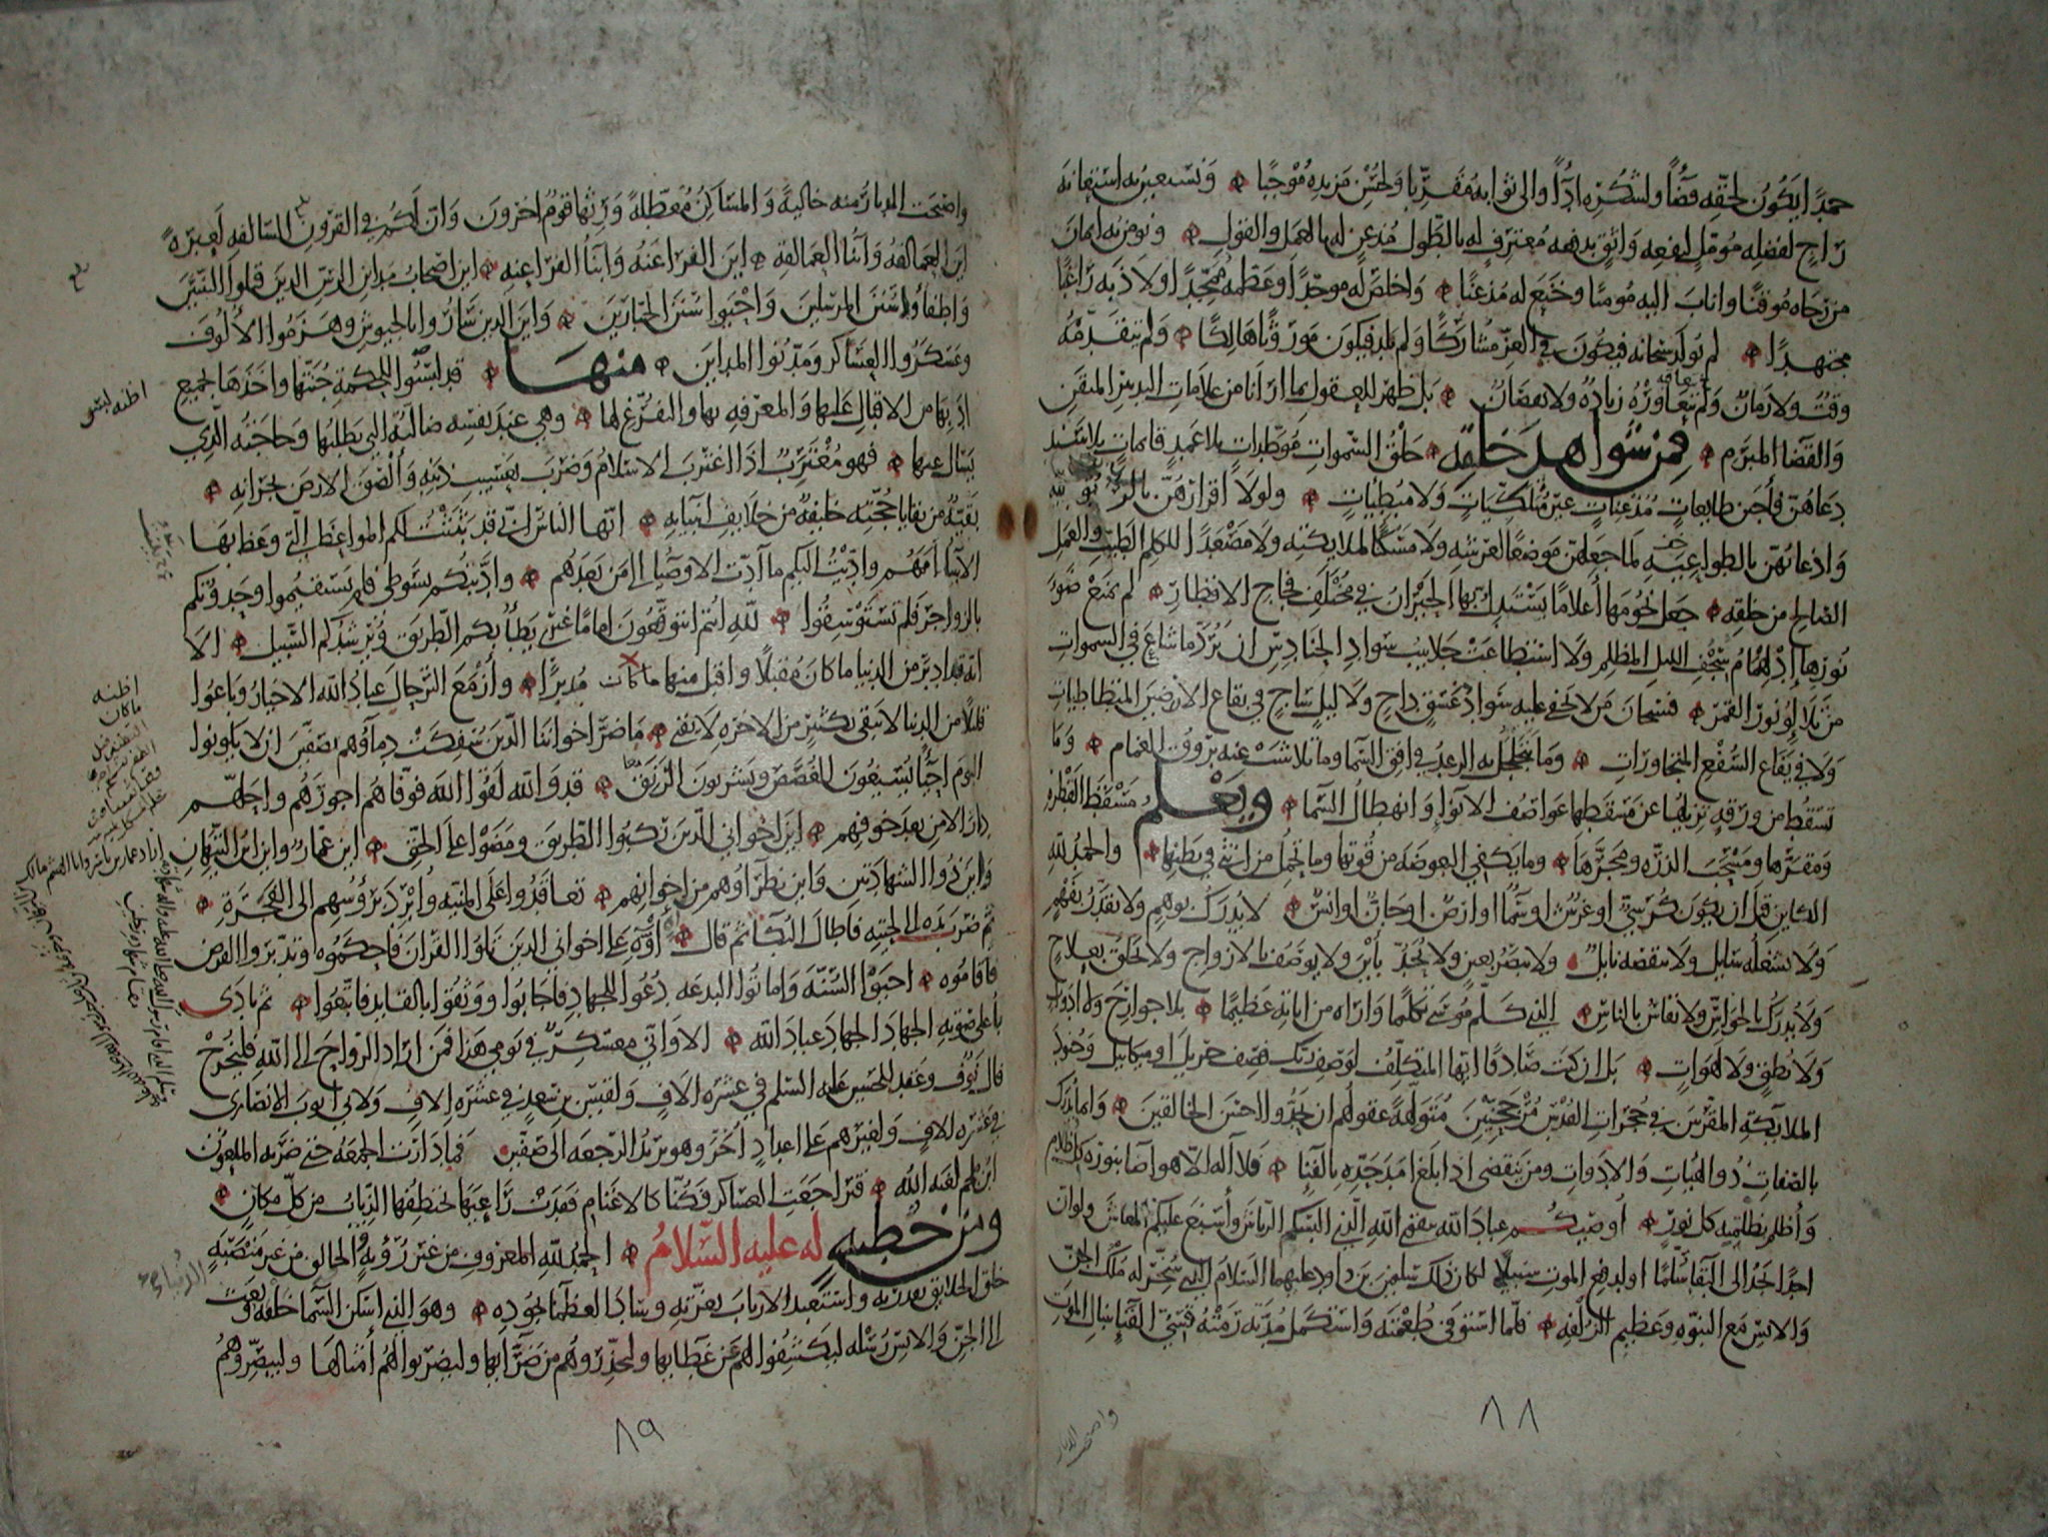 حمدًا يكون لحقه قضاً ولشكره ادًّا والى ثوابه مقرّبا ولحسن مزيده مُوجبًا ۞ ونستعين به استعانة
راجٍ لفضله مومّلٍ لنفعه واثقٍ بدفعه معترفٍ له بالطَّول مُذعنٍ له بالعمل والقول ۞ ونومن به ايمان
من رجاه مُوقنًا واناب اليه مُومنًا وخنع له مُذعنًا ۞ واخلص له موحّدًا وعظمه ممجّدًا ولاذ به راغبًا
مجتهدًا ۞ لم يولد سبحانه فيكون في العزّ مشاركًا ولم يلد فيكون موروثًا هالكًا ۞ ولم يتقدّمه
وقتٌ ولا زمانٌ ولم يتعاوره زيادة ولا نقصان ۞ بل ظهر للعقول بما ارانا من علامات التدبير المتقن
والقضا المبرم ۞ فمن شواهد خلقه ۞ خلق السموات موطّداتٍ بلا عمدٍ قايماتٍ بلا سند
دعاهنّ فأجبن طايعاتٍ مُذعناتٍ غير متلكّياتٍ ولا مبطياتٍ ۞ ولولا اقرارهنّ بالربوبيه
واذعانهنّ بالطواعيه لما جعلهنّ موضعًا لعرشه ولا مسكنًا لملايكته ولا مصعدًا للكلم الطيّب والعمل
الصالح من خلقه ۞ جعل نجومها أعلامًا يستدلّ بها الحيران في مختلف فجاج الاقطار ۞ لم يمنع ضوَ
نورها ادلهمام سجف الليل المظلم ولا استطاعت جلابيب سواد الحنادس ان تردّ ما شاع في السموات
من تلالؤ نور القمر ۞ فسبحان من لا يخفى عليه سواد غسقٍ داجٍ ولا ليلٍ ساجٍ في بقاع الارضين المتطاطيات
ولا في يفاع السُّفع المتجاورات ۞ وما يتجلجل به الرعد في افق السما وما تلاشت عنه بروق الغمام ۞ وما
تسقط من ورقه تزيلها عن مسقطها عواصف الانوا وانهطال السما ۞ ويعلم مسقط القطره
ومقرّها ومسحب الذرّه ومجرّها ۞ وما يكفي البعوضه من قوتها وما تحمل من انثى في بطنها ۞ والحمد لله
الكاين قبل ان يكون كرسيٌّ او عرشٌ او سماٌ او ارضٌ او جانٌّ او انسٌ ۞ لا يدرك بوهم ولا يقدّر بفهم
ولا يشغله سايل ولا ينقصه نايل ۞ ولا يبصر بعين ولا يُحدّ بأين ولا يوصف بالازواج ولا يخلق بعلاج
ولا يدرك بالحواسّ ولا يقاس بالناس ۞ الذي كلّم موسى تكليما واراه من اياته عظيمًا ۞ بلا جوارح ولا ادوات
ولا نطقٍ ولا لهوات ۞ بل ان كنت صادقا ايها المتكلّف لوصف ربّك فصف جبريل او ميكاييل وجنود
الملايكة المقرّبين في حجرات القدس مرجحنّين متولّهةً عقولهم ان يحدّوا احسن الخالقين ۞ وانما يدرك
بالصفات ذوو الهيات والادوات ومن ينقضى اذا بلغ امد حدّه بالفنا ۞ فلا اله الا هو اضا بنوره كل ظلام
وأظلم بظلمته كل نور ۞ أوصيكم عباد الله بتقوى الله الذي البسكم الرياش وأسبغ عليكم المعاش ولو ان
احدًا يجد الى البقا سلّمًا او لدفع الموت سبيلا لكان ذلك سليمن بن داود عليهما السلام الذي سخّر له ملك الجنّ
والانس مع النبوّه وعظيم الزلفه ۞ فلمّا استوفى طعمته واستكمل مدّته رمته قسيّ الفنا بنبال الموت
واصبحت الديار
٨٨
واصبحت الديار منه خالية والمساكن معطّلة ورثها قوم اخرون وان لكم في القرون السالفه لعبرة
اين العمالقه وابنا العمالقه ۞ اين الفراعنه وابنا الفراعنه ۞ اين اصحاب مداين الرسّ الذين قتلوا النبيّين
واطفاوا سنن المرسلين واحيوا سنن الجبّارين ۞ واين الذين ساروا بالجيوش وهزموا الالوف
وعسكروا العساكر ومدّنوا المداين ۞ منها ۞ قد لبسوا للحكمة جنّتها واخذها بجميع
ادبها من الاقبال عليها والمعرفه بها والتفرّغ لها ۞ وهي عند نفسه ضالّته التي يطلبها وحاجته الّتي
يسال عنها ۞ فهو مغترب اذا اغترب الاسلام وضرب بعسيب ذنبه وألصق الارض بجرانه ۞
بقيّة من بقايا حجّته خليفة من خلايف انبيايه ۞ ايّها الناس انّي قد بثثت لكم المواعظ التي وعظ بها
الانبيا أممهم وادّيت اليكم ما ادّت الاوصيا الى من بعدهم ۞ وادّبتكم بسوطى فلم تستقيموا وحدوتكم
بالزواجر فلم تستوسقوا ۞ لله انتم اتتوقّعون امامًا غيرى يطأ بكم الطريق ويرشدكم السبيل ۞ الا
انه قد ادبر من الدنيا ما كان مقبلًا واقبل منها ما كان مُدبرًا ۞ وأزمع التّرحال عباد الله الاخيار وباعوا
قليلًا من الدنيا لا يبقى بكثيرٍ من الاخره لا يفنى ۞ ما ضرّ اخواننا الذين سُفكت دماؤهم بصفّين ان لا يكونوا
اليوم احيًا يسيغون الغُصص ويشربون الرّنق ۞ قد والله لقوا الله فوفّاهم اجورهم واحلّهم
دار الامن بعد خوفهم ۞ اين اخواني الذين ركبوا الطريق ومضوا على الحقّ ۞ اين عمّارٌ واين ابن التّيّهان
واين ذو الشهادتين واين نظراوهم من اخوانهم ۞ تعاقدوا على المنيّه وأبرد برؤسهم الى الفجرة ۞
ثم ضرب يده الى لحيته فاطال البكا ثم قال ۞ أوّه على اخواني الذين تلوا القران فاحكموه وتدبّروا الفرض
فاقاموه ۞ احيوا السّنّة واماتوا البدعه دُعوا للجهاد فاجابوا ووثقوا بالقايد فاتّبعوا ۞ ثم نادى
بأعلى صوته الجهاد الجهاد عباد الله ۞ الا وانّي معسكرٌ في يومي هذا فمن اراد الرواح الى الله فليخرج
قال نوف وعقد للحسين عليه السلم في عشره الافٍ ولقيس بن سعدٍ في عشره الافٍ ولابي ايوب الانصارى
في عشره الافٍ ولغيرهم على اعدادٍ أخر وهو يريد الرجعه الى صفّين ۞ فما دارت الجمعه حتى ضربه الملعون
ابن ملجم لعنه الله ۞ فتراجعت العساكر فكنّا كالاغنام فقدت راعيها تختطفها الذياب من كلّ مكان ۞
ومن خطبه له عليه السلام ۞ الحمد لله المعروف من غير رؤيةٍ الخالق من غير منصبةٍ
خلق الخلايق بقدرته واستعبد الارباب بعزّته وساد العظما بجوده ۞ وهو الذي اسكن السما خلقه وبعث
الى الجنّ والانس رسله ليكشفوا لهم عن غطايها وليحذّروهم من ضرّايها وليضربوا لهم أمثالها وليبصّروهم
اظنه لبس
اظنه
ما كان
الدنيا
٨٩